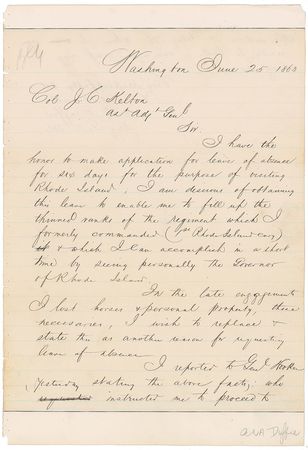 Washington June 25 1863
Col J. C. Kelton
Asst Adjt Genl
Sir
I have the
honor to make application for leave of absence
for six days for the purpose of visiting
Rhode Island. I am desirous of obtaining
this leave to enable me to fill up the
thinned ranks of the regiment which I
formerly commanded (1st Rhode Island Cavy)
& which I can accomplish in a short
time by seeing personally the Governor
of Rhode Island.
In the late engagement
I lost horses & personal property, those
necessaries, I wish to replace &
state this as another reason for requesting
leave of absence.
I reported to Genl Hooker
yesterday stating the above facts; who
instructed me to proceed to